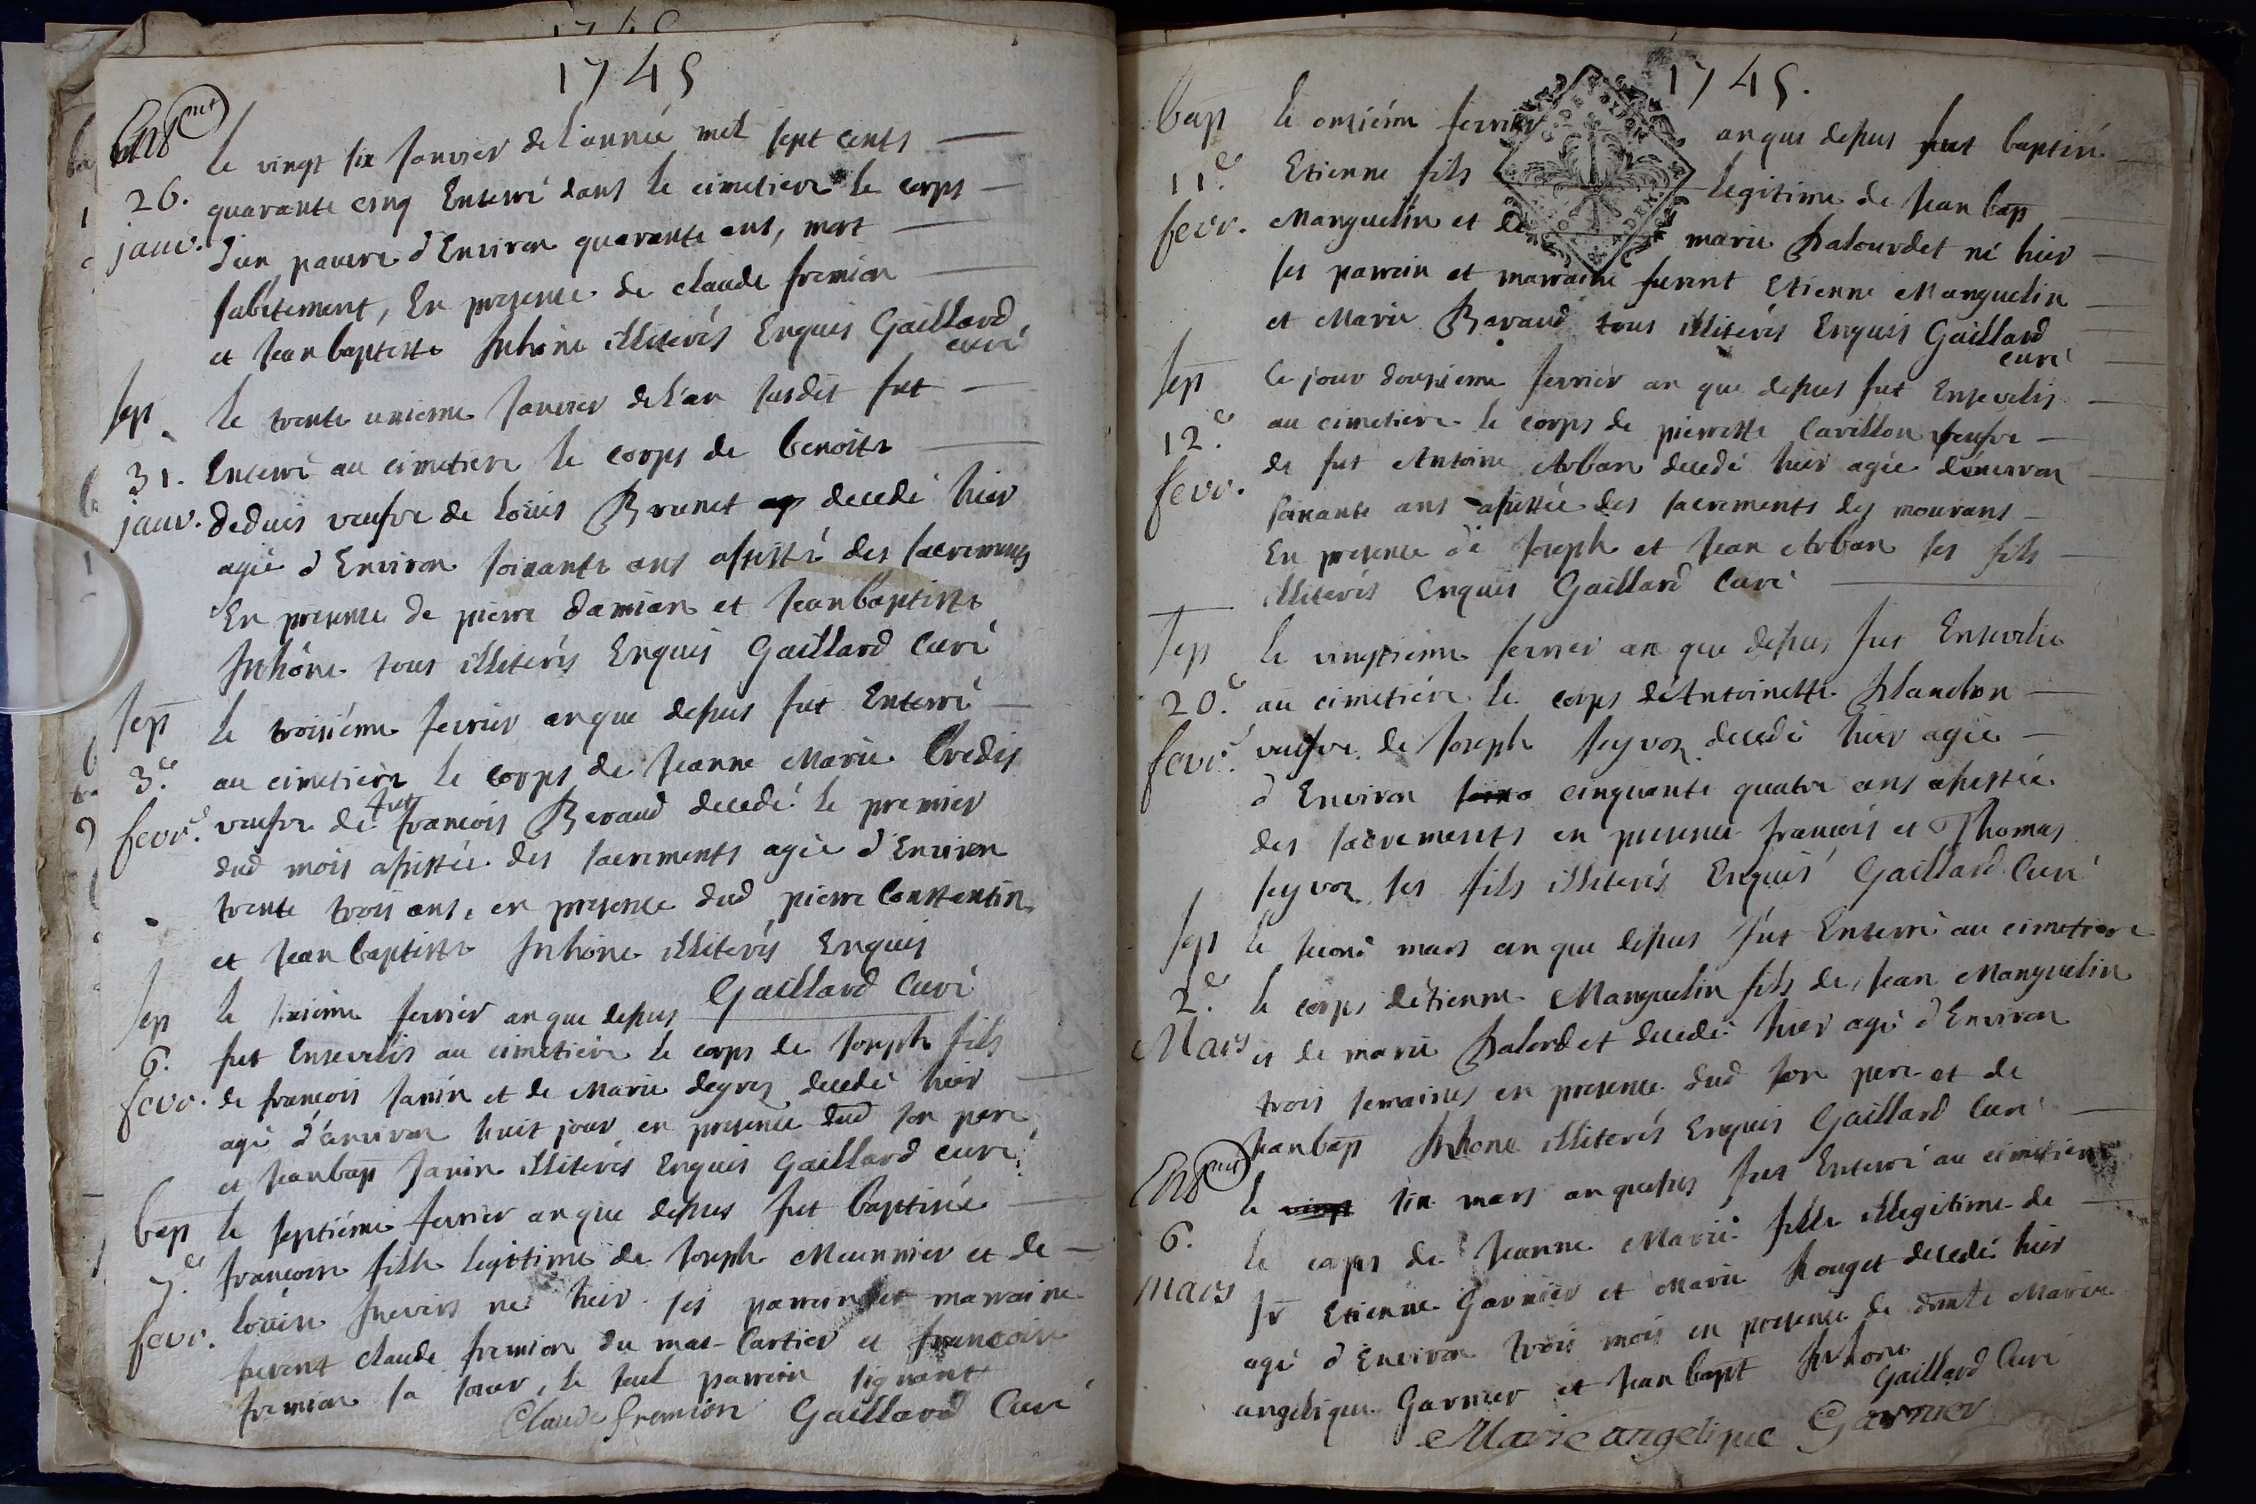 1745
le vingt six Janvier de l'année mil sept cents
26. quarante cinq Enterré dans le cimetiere le corps
janv. d'un pauvre d'Environ quarante ans, mort
subitement, En presence de claude fremion
et Jean baptiste illiterés Enquis Gaillard
curé
sep le trente unieme Janvier de l'an susdit fut
31. Enterré au cimetiere le corps de benoite
janv. deduis veufve de Louis Brunet decedé hier
agée d'Environ soixante ans assistée des sacrements
En presence de pierre damian et Jean baptiste
tous illiterés Enquis Gaillard Curé
sep le troisiéme fevrier an que dessus fut Enterré
3.e au cimetiere le corps de Jeanne Marie Credis
fevr. veufve de fut françois Beraud decedé le premier
dud mois assistée des sacrements agée d'Environ
trente trois ans, en presence dud pierre Constantin
et Jean baptiste illiterés Enquis
Gaillard Curé
sep le sixiéme fevrier an que dessus
6. fut Ensevelis au cimetiere le corps de Joseph fils
fevr. de françois Janin et de Marie degres decedé hier
agé d'environ huit jour en presence dud son pere
et Jean bap Janin illiterés Enquis Gaillard curé
bap le septiéme fevrier an que dessus fut baptisée
7.e françoise fille legitime de Joseph Meunnier et de
fevr. Louise née hier ses parrein et marraine
furent claude fremion du mas-Cartier et françoise
fremion sa soeur, le seul parrein signant
Claude fremion Gaillard Curé
1745.
bap le onziéme fevrier an que dessus fut baptisé
11.e Etienne fils legitime de Jean bap
fevr. Manguelin et de marie Balourdet né hier
ses parrein et marraine furent Etienne Manguelin
et Marie Baraud tous illiterés Enquis Gaillard
curé
sep Ce jour douzieme fevrier an que dessus fut Ensevelis
12.e au cimetiere le corps de pierrette Cavillon veufve
fevr. de fut Antoine Arban decedé hier agée d'énviron
soixante ans assistée des sacrements des mourans
En presence de Joseph et Jean Arban ses fils
illiterés Enquis Gaillard Curé
sep le vingtieme fevrier an que dessus fut Ensevelie
20.e au cimetiére le corps de Antoinette Blanchon
fevr. veufve de Joseph Seyvoz decedé hier agée
d'Environ cinquante quatre ans assistée
des sacrements en presence françois et Thomas
Seyvoz ses fils illiterés Enquis Gaillard Curé
sep le second mars an que dessus fut Enterré au cimetiere
2.e le corps détienne Manguelin fils de Jean Manguelin
Mars et de marie Balordet decedé hier agé d'Environ
trois semaines en presence dud son pere et de
Jean bap illiterés Enquis Gaillard Curé
le six mars an que dessus fut Enterré au cimetiere
6. le corps de Jeanne Marie fille illegitime de
mars Sr Etienne Garnier et Marie Rouget decedé hier
agé d'Environ trois mois en presence de dmlle Marie
angelique Garnier et Jean bapt
Gaillard Curé
Marie angelique Garnier